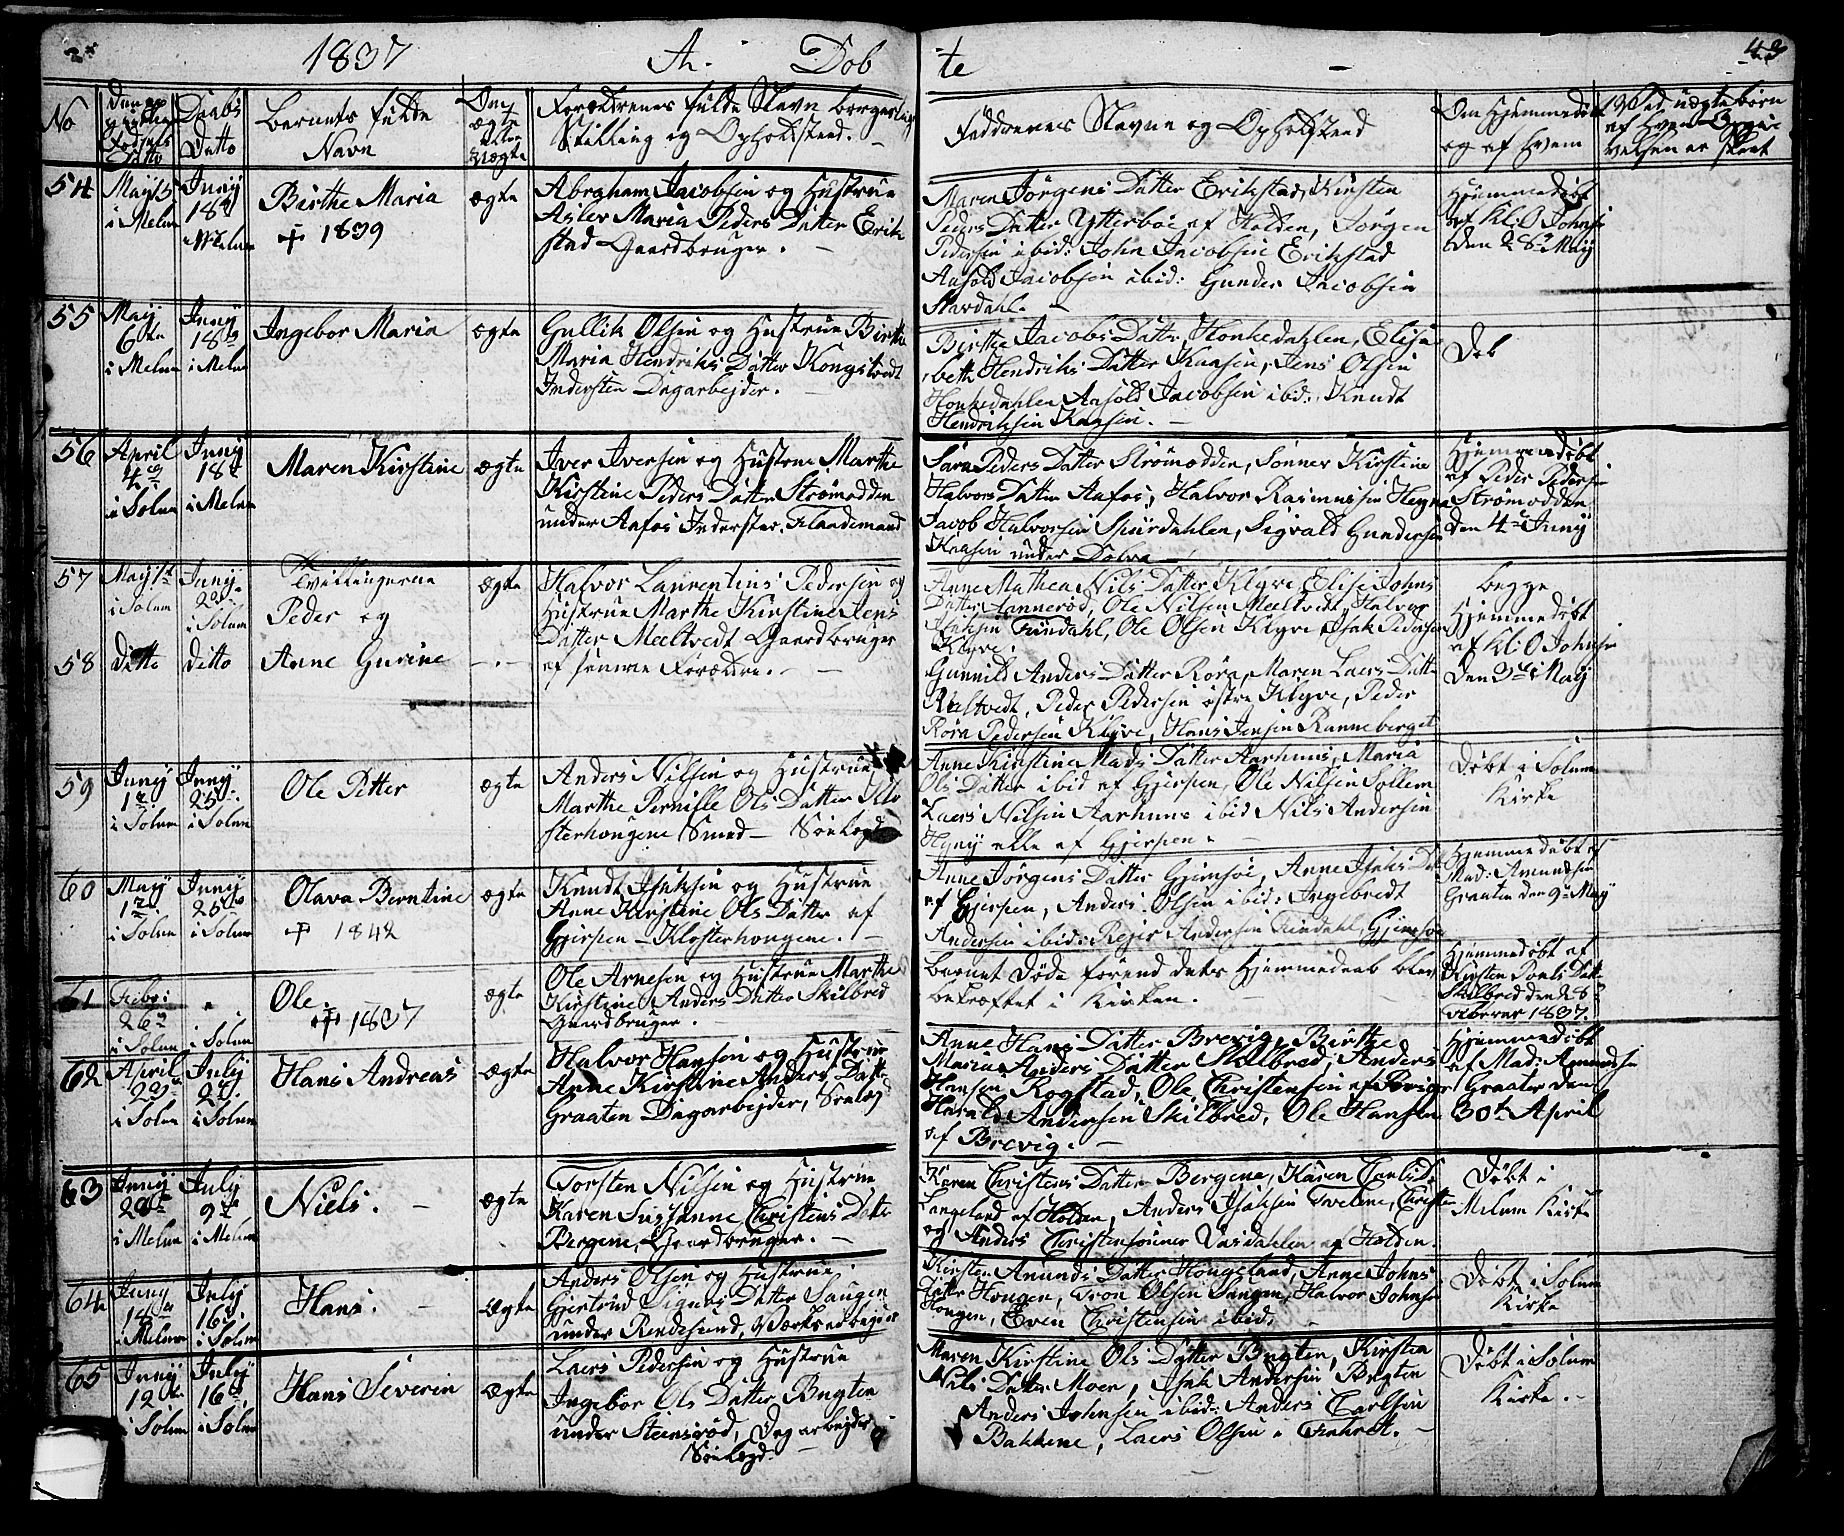 1837 A. Dob
te
43
No
Fødsels
Ditto
Daabs
Ditto
Barnets fulde
Navn
Om
ægte
eller
uægte
Forældrenes fulde Navn borgerlig
Stilling og Opholdsted.
Faddernes Navne og Opholsted
Om Hjemmedøbt
og af hvem
Ved uægte børn
af hvem Opgi
velsen er skeet
54
May 15
i Melum
Juny
18de
i Melum
Birthe Maria
✝ 1839
ægte
Abraham Jacobsen og Hustrue
Maria Peders Datter Erik
stad Gaardbruger. —
Maren Jörgens Datter Erikstad, Kirsten
Peders Datter Ytterböe af Holden, Jörgen
Pedersen ibid: John Jacobsen Erikstad
Aasold Jacobsen ibid: Gunder Jacobsen
Navdahl. —
Hjemmedøbt
af Kl: O Johnse
den 28de May
55
May
6te
i Melum
Juny
18de
i Melum
Ingebor Maria
ægte
Gullik Olsen og Hustrue Birthe
Maria Hendriks Datter Kongstvedt
Indersten Dagarbejder. —
Birthe Jacobs Datter Honkedahlen, Elisa
beth Hendriks Datter Kaasen, Jens Olsen
Honkedahlen Aasold Jacobsen ibid: Knudt
Hendriksen Kaasen. —
56
April
4de
i Solum
Juny
18de
i Melum
Maren Kirstine
ægte
Iver Iversen og Hustrue Marthe
Kirstine Peders Datter Strømodden
under Aafos Inderster. Flaademand
Sara Peders Datter Strømodden, Sønner Kirstine
Halvors Datter Aafos, Halvor Rasmussen Heyna
Jacob Halvorsen Spirdahlen, Sigvald Gundersen
Kaasen under Dolva —
Hjemmedøbt
af Peder Pedersen
Strømodden
den 4de Juny
57
May 1st
i Solum
Juny
25
i Solum
Tvillingerne
Peder og
ægte
Halvor Laurentius Pedersen og
Hustrue Marthe Kirstine Jens
Datter Meeltvedt Gaardbruger
Anne Mathea Nils Datter Klyve, Elise Johns
Datter Tannerød, Ole Nilsen Meeltvedt, Halvor
Isaksen Findahl, Ole Olsen Klyve, Isak Pedersen
Klyve.
begge
Hjemmedøbt
af Kl: O Johnsen
den 3de May
58
ditto
ditto
Anne Gurine
— . —
af samme Forældre. —
Gunnild Anders Datter Röra, Maren Laers Datter
Meltvedt, Peder Pedersen østre Klyve, Peder
Röra Pedersen Klyve, Hans Jensen Ranneberget
59
Juny
1de
i Solum
Juny
25de
i Solum
Ole Petter
ægte
Anders Nilsen og Hustrue
Marthe Pernille Ols Datter Klo
sterhougene Smed — Sönlogd
Anne Kirstine Mads Datter Aarhuus, Maria
Ols Datter ibid af Gjerpen, Ole Nilsen Sollem
Laers Nilsen Aarhuus ibid Nils Andersen
alle af Gjerpen. —
Døbt i Solum
Kirke
60
May
1de
i Solum
Juny
25de
i Solum
Olava Berntine
✝ 1842
ægte
Knudt Isaksen og Hustrue
Anne Kirstine Ols Datter af
Gjerpen — Klosterhougene. —
Anne Jörgens Datter Gjemsöe, Anne Isaks Dat
af Gjerpen, Anders Olsen ibid: Ingebredt
Andersen ibid: Rejer Andersen Findahl, Gjemsöe
Hjemmedøbt af
Mad: Amundsen
Graaten den 9de May
61
Febr:
26de
i Solum
"
i Solum
Ole.
✝ 1837
ægte
Ole Arnesen og Hustrue Marthe
Kirstine Anders Datter Skilbred
Gaardbruger. —
barnet døde forend dets Hjemmedaab blev
bekræftet i Kirken. —
Hjemmedøbt af
Kirsten Povels Datt
Skilbred den 28de
Februar 1837.
62
April
29de
i Solum
July
2de
i Solum
Hans Andreas
ægte
Halvor Hansen og Hustrue
Anne Kirstine Anders Datt
Graaten Dagarbejder, Sönlogd
Anne Hans Datter Brevig, Birthe
Maria Anders Datter Skilbred, Anders
Hansen Rogstad, Ole Christensen af Brevig
Harald Andersen Skilbred, Ole Hansen
af Brevig. —
Hjemmedøbt
af Mad: Amundsen
Graaten den
30te April
63
Juny
i Melum
July
9de
i Melum
Niels. —
ægte
Torsten Nilsen og Hustrue
Karen Susanne Christens Datter
Bergene, Gaardbruger. —
Karen Christens Datter Bergene, Karen Carls D.
Langeland af Holden, Anders Isaksen Tvetene, Christen
og Anders Christensønner Vasdahlen af Holden.
Døbt i
Melum Kirke
64
Juny
14de
i Melum
July
16de
i Solum
Hans. —
Ægte
Anders Olsen og Hustrue
Gjertrud Signes Datter Saugen
under Rendesund, Værksarbejder
Kirsten Amunds Datter Hougeland, Anne Johns
Datter Hougen, Tron Olsen Saugen, Halvor Johnsen
Hougen, Even Christensen ibid.
Døbt i Solum
Kirke
65
Juny
12de
i Solum
July
16de
i Solum
Hans Severin
ægte
Laers Pedersen og Hustrue
Ingebor Ols Datter Bugten
under Steensrød, Dagarbejder
Sönlogd.
Maren Kirstine Ols Datter Bugten, Kirstia
Nils Datter Moen, Isak Andersen Bugten
Anders Johnsen ibid: Anders Carlsen
Bakkene, Laers Olsen Enkret. —
Døbt i Solum
Kirke. —